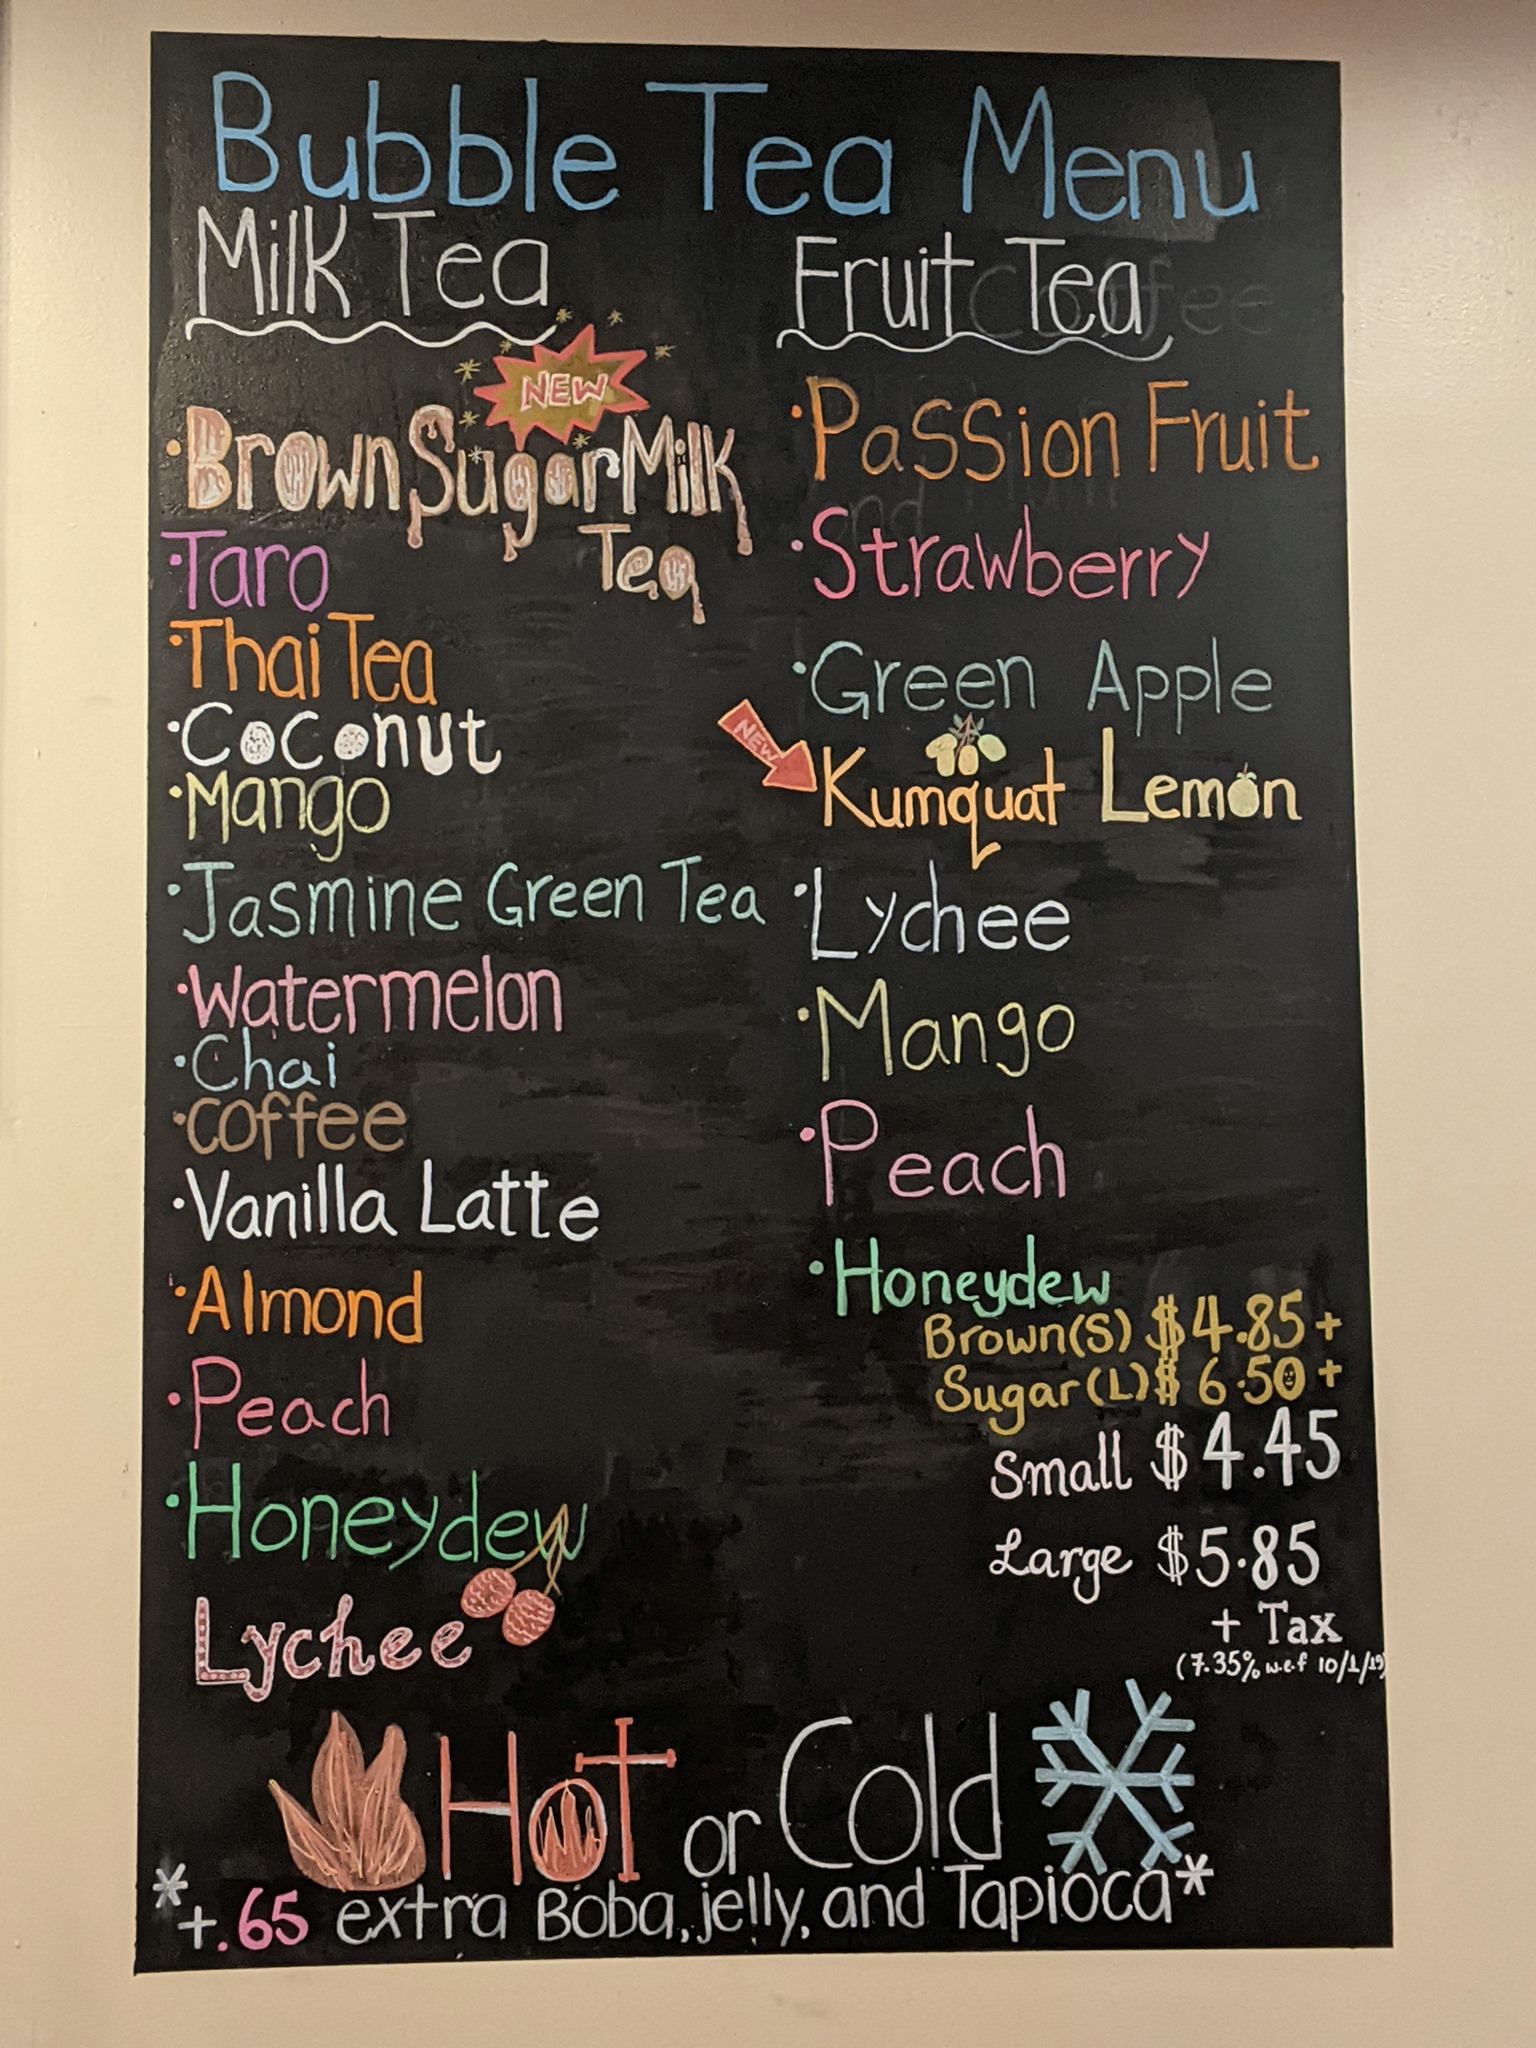 Bubble Tea Menu
Milk Tea
NEW
• Brown Sugar Milk
Tea
• Taro
• Thai Tea
• Coconut
• Mango
• Jasmine Green Tea
• Watermelon
• Chai
• coffee
• Vanilla Latte
• Almond
• Peach
• Honeydew
Lychee
Fruit Tea
Coffee
• Passion Fruit
• Strawberry
• Green Apple
NEW
Kumquat Lemon
• Lychee
• Mango
• Peach
• Honeydew
Brown(S) $4.85+
Sugar(L)$ 6.50+
Small $4.45
Large $5.85
+ Tax
(7.35% w.e.f 10/1/19)
Hot or Cold
*+.65 extra Boba, jelly, and Tapioca*